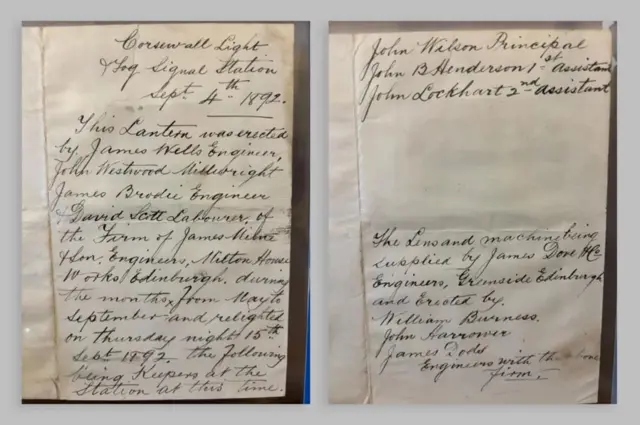 Corsewall Light
& Fog Signal Station
Sept 4th 1892.
This Lantern was erected
by James Wells Engineer,
John Westwood Millwright
James Brodie Engineer
& David Scott Labourer, of
the Firm of James Milne
& Son, Engineers, Milton House
Works Edinburgh, during
the months from May to
September and relighted
on thursday night 15th
Sept 1892. the following
being Keepers at the
Station at this time.
John Wilson Principal
John B Henderson 1st assistant
John Lockhart 2nd assistant
The Lens and machine being
supplied by James Dove & Co
Engineers, Greenside Edinburgh
and Erected by.
William Burness.
John Harrower
James Dods
Engineers with the above
firm.